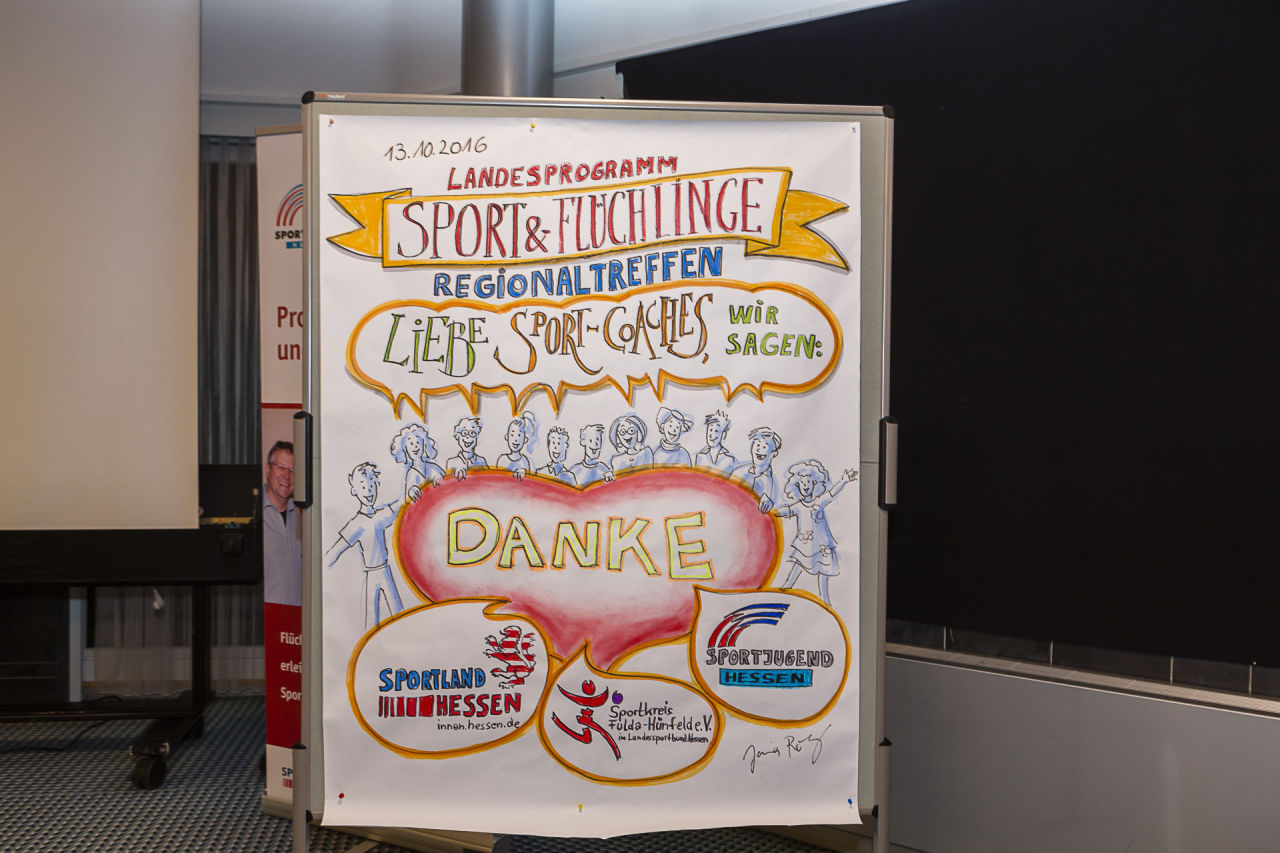 13.10.2016
LANDESPROGRAMM
SPORT & FLÜCHLINGE
REGIONALTREFFEN
LIEBE SPORT-COACHES, WIR SAGEN:
DANKE
SPORTLAND
HESSEN
innen.hessen.de
Sportkreis
Fulda-Hünfeld e.V.
im Landessportbund Hessen
SPORTJUGEND
HESSEN
SPORT
Pro
un
Flüch
erlei
Spor
SP